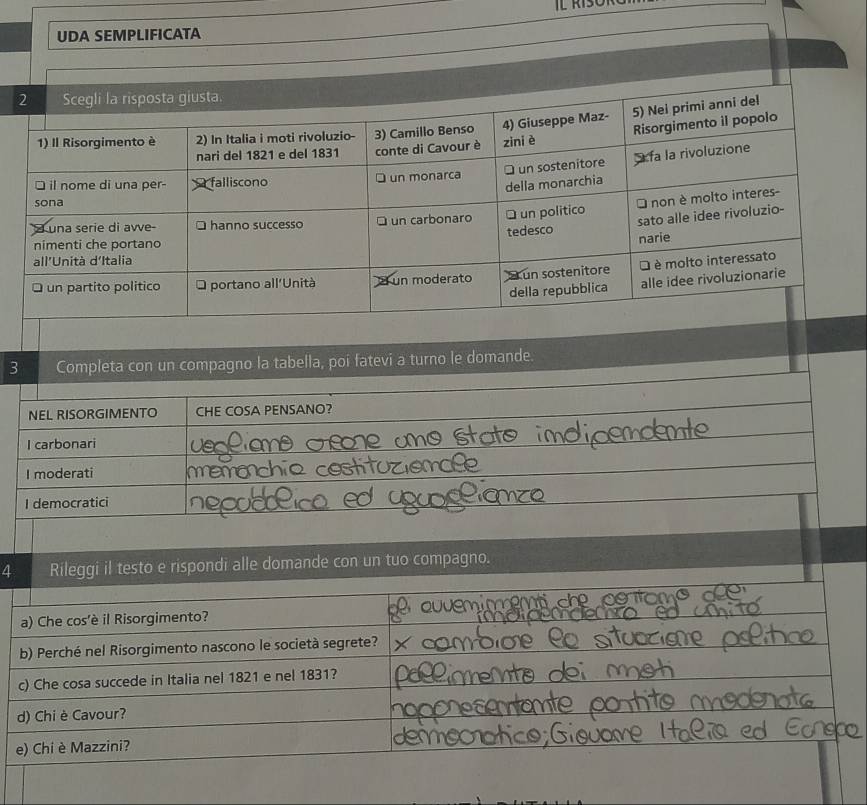 UDA SEMPLIFICATA
2 Scegli la risposta giusta.
1) Il Risorgimento è
❏ il nome di una per-
sona
una serie di avve-
nimenti che portano
all'Unità d'Italia
❏ un partito politico
2) In Italia i moti rivoluzio-
nari del 1821 e del 1831
falliscono
❏ hanno successo
❏ portano all'Unità
3) Camillo Benso
conte di Cavour è
❏ un monarca
❏ un carbonaro
un moderato
4) Giuseppe Maz-
zini è
❏ un sostenitore
della monarchia
❏ un politico
tedesco
un sostenitore
della repubblica
5) Nei primi anni del
Risorgimento il popolo
fa la rivoluzione
❏ non è molto interes-
sato alle idee rivoluzio-
narie
❏ è molto interessato
alle idee rivoluzionarie
3 Completa con un compagno la tabella, poi fatevi a turno le domande.
NEL RISORGIMENTO CHE COSA PENSANO?
I carbonari stato indipendente
I moderati
I democratici ed
4 Rileggi il testo e rispondi alle domande con un tuo compagno.
a) Che cos'è il Risorgimento? gli avvenimenti che portano
ed unità
b) Perché nel Risorgimento nascono le società segrete? x situazione politica
c) Che cosa succede in Italia nel 1821 e nel 1831? dei moti
d) Chi è Cavour? partito
e) Chi è Mazzini? Italia ed